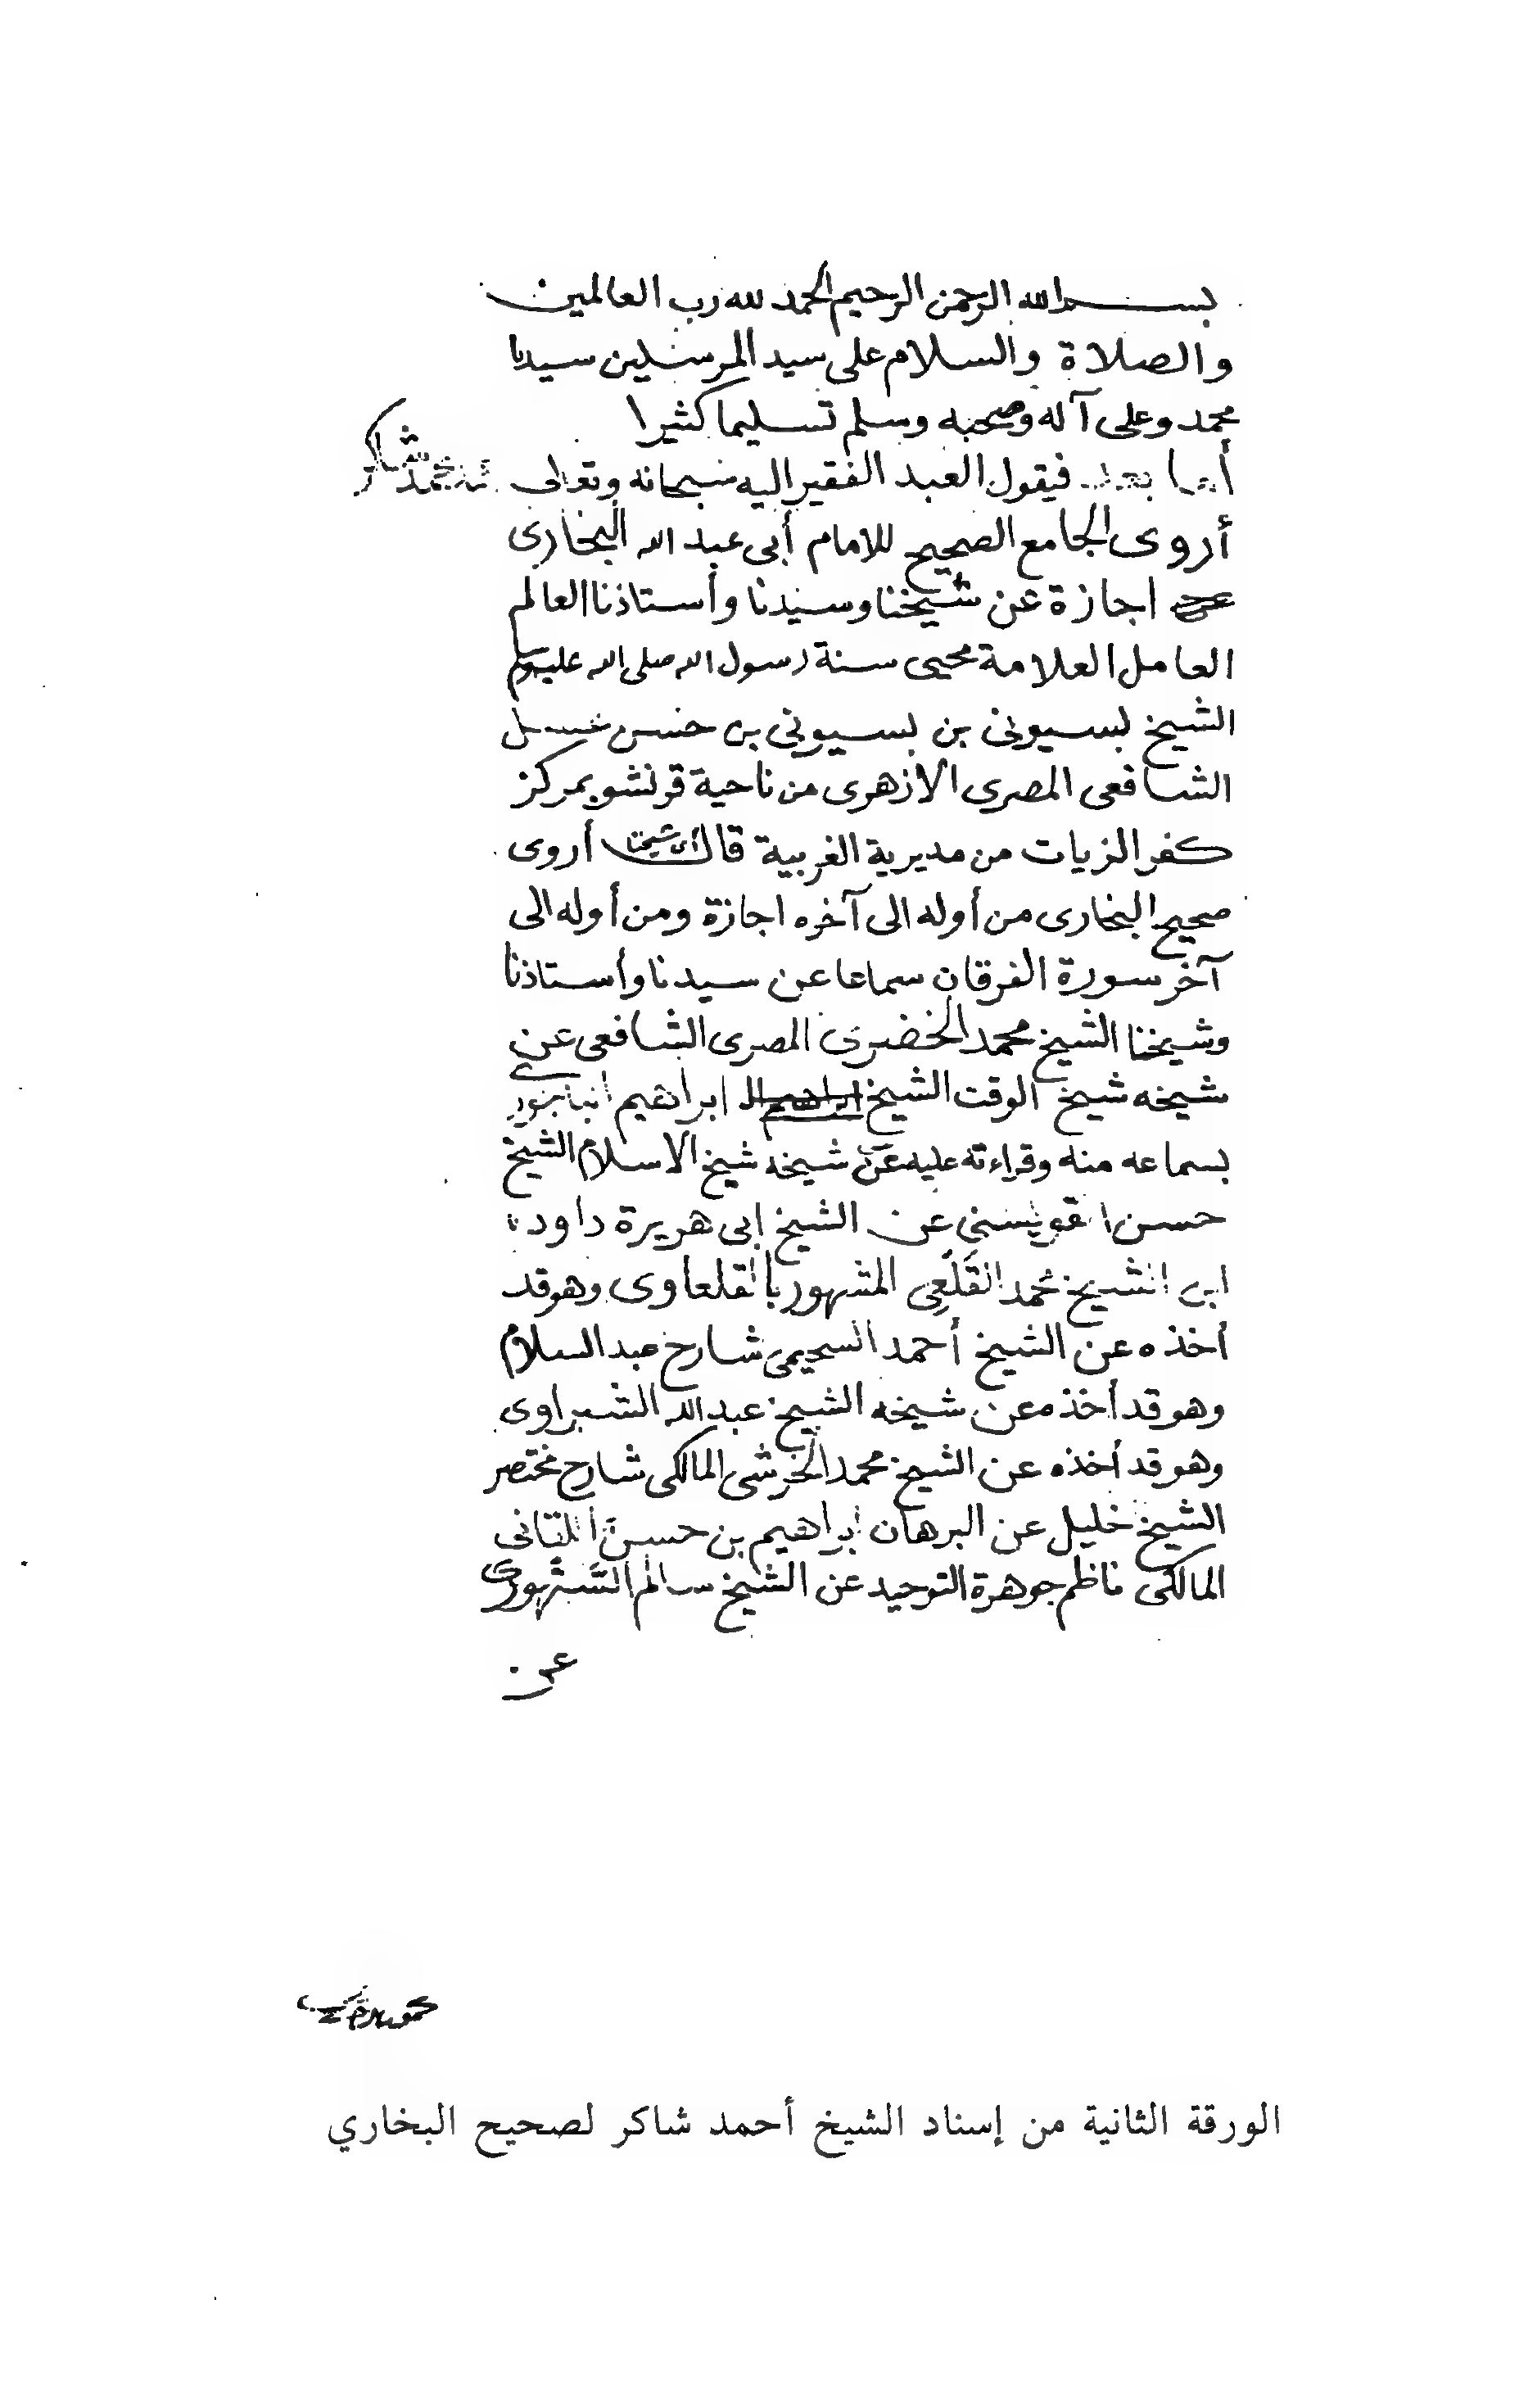 بسم الله الرحمن الرحيم الحمد لله رب العالمين
والصلاة والسلام على سيد المرسلين سيدنا
محمد وعلى آله وصحبه وسلم تسليما كثيرا
أما بعد فيقول العبد الفقير اليه سبحانه وتعالى محمد شاكر
أروى الجامع الصحيح للامام أبى عبد الله البخارى
اجازة عن شيخنا وسيدنا وأستاذنا العالم
العامل العلامة محيى سنة رسول الله صلى الله عليه وسلم
الشيخ بسيونى بن بسيونى بن حسن عسل
الشافعى المصرى الازهرى من ناحية قرنشو بمركز
كفر الزيات من مديرية الغربية قال أى شيخنا أروى
صحيح البخارى من أوله الى آخره اجازة ومن أوله الى
آخر سورة الفرقان سماعا عن سيدنا وأستاذنا
وشيخنا الشيخ محمد الخضرى المصرى الشافعى عن
شيخه شيخ الوقت الشيخ ابراهيم الباجورى
بسماعه منه وقراءته عليه عن شيخه شيخ الاسلام الشيخ
حسن القويسنى عن الشيخ ابى هريرة داود
ابن الشيخ محمد القَلْعِى المشهور بالقلعاوى وهو قد
أخذه عن الشيخ أحمد السحيمى شارح عبد السلام
وهو قد أخذه عن شيخه الشيخ عبد الله الشبراوى
وهو قد أخذه عن الشيخ محمد الخرشى المالكى شارح مختصر
الشيخ خليل عن البرهان ابراهيم بن حسن اللقانى
المالكى ناظم جوهرة التوحيد عن الشيخ سالم السَّنْهورى
عن
الورقة الثانية من إسناد الشيخ أحمد شاكر لصحيح البخاري